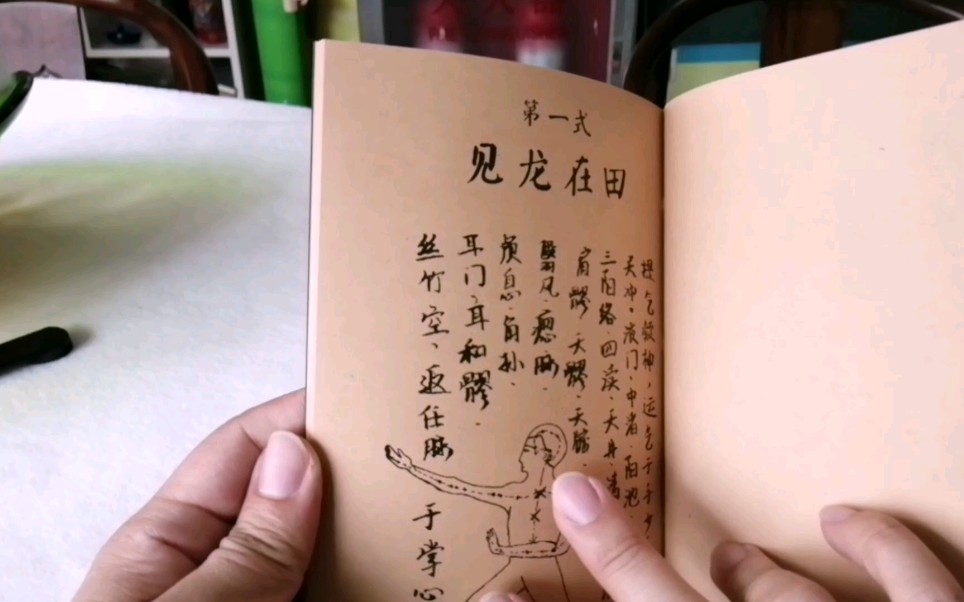 第一式
见龙在田
提气敛神，运气于手少
关冲。液门、中渚、阳池、
三阳络、四渎、天井、清
肩髎、天髎、天牖、
翳风、瘛脉、
颅息、角孙、
耳门、耳和髎、
丝竹空、返任脉于掌心